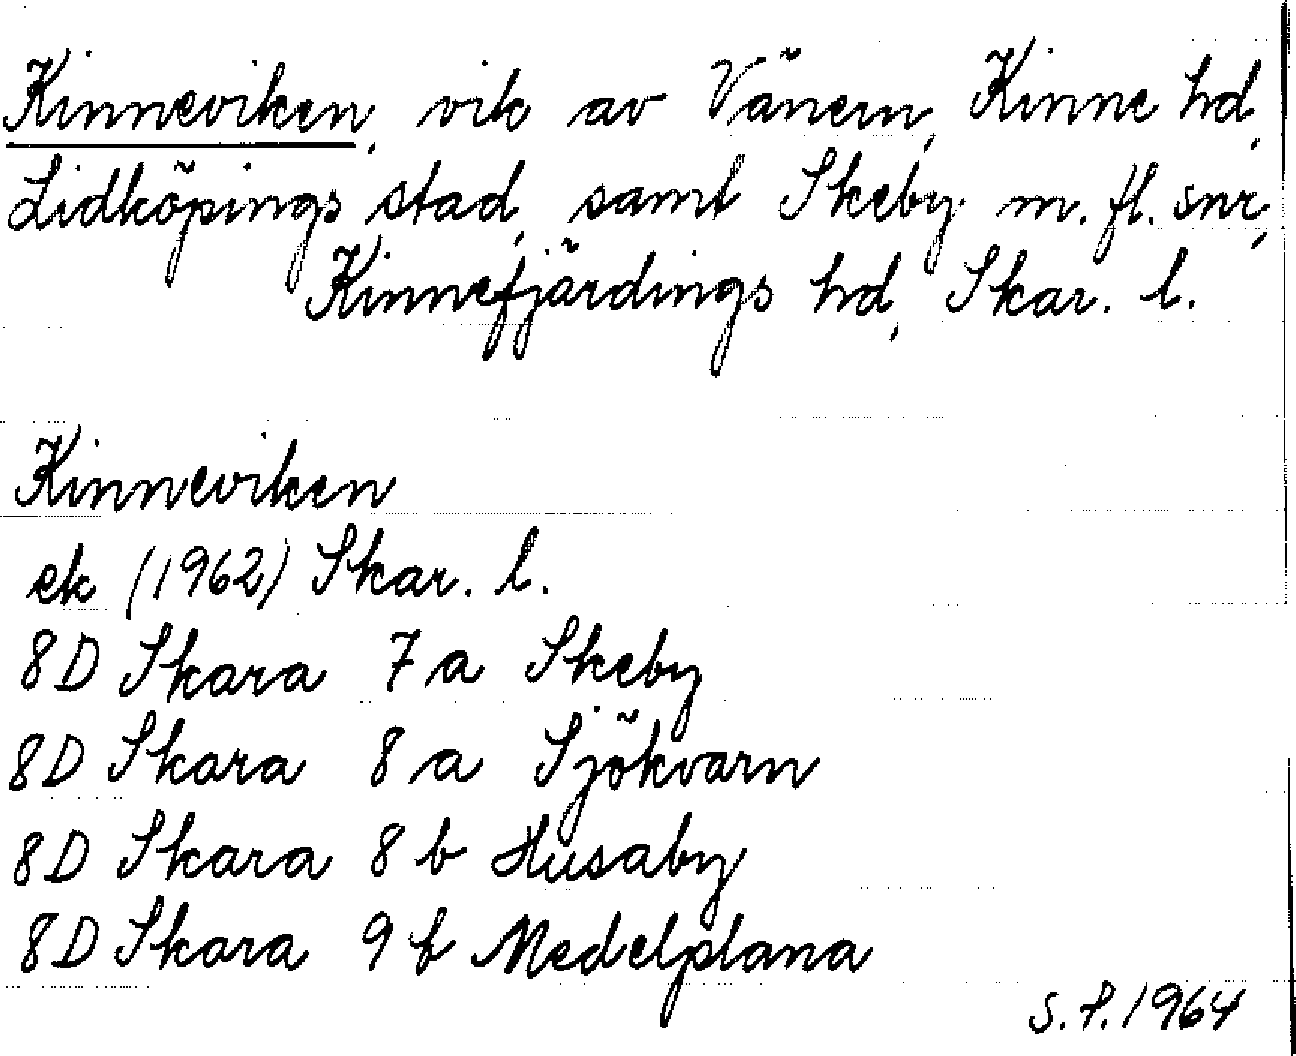 Kinneviken, vik av Vänern, Kinne hd,
Lidköpings stad, samt Skeby m. fl. snr,
Kinnefjärdings hd, Skar. l.
Kinneviken
ek (1962) Skar. l.
8D Skara 7a Skeby
8D Skara 8a Sjökvarn
8D Skara 8b Husaby
8D Skara 9b Medelplana
S.P. 1964